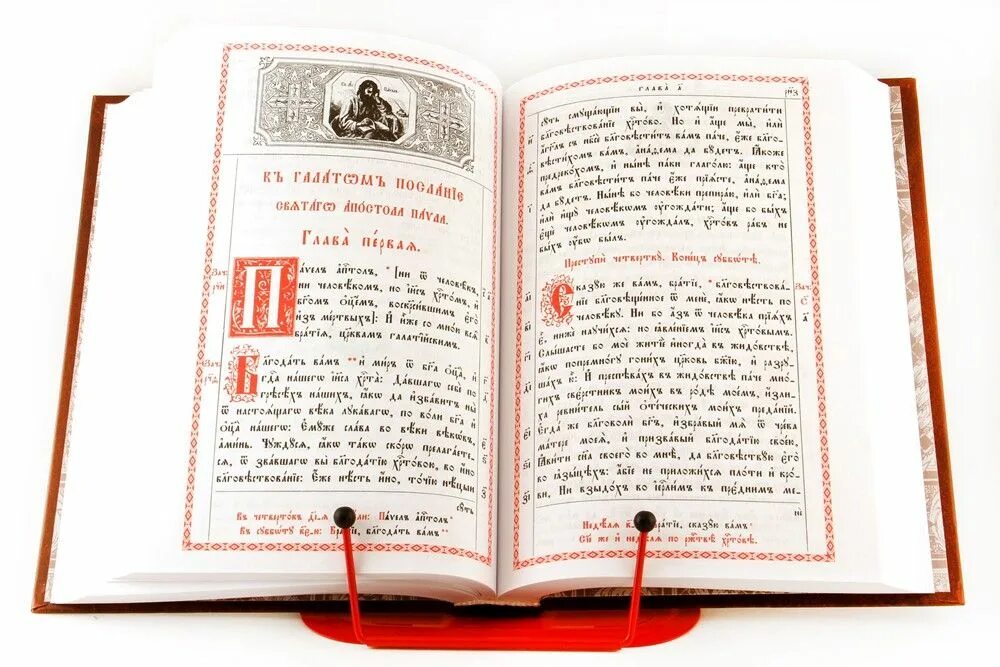 Къ галатѡмъ посланїе
свѧтагѡ апостола паѵла.
Глава̀ пе́рваѧ.
Па́ѵелъ а҆пⷭ҇толъ, *[ни ѿ человѣ̑къ,
ни человѣ́комъ, но і҆и҃съ хрⷭ҇то́мъ, и҆
бг҃омъ ѻ҆ц҃е́мъ, воскр҃си́вшимъ є҆го̀
и҆з̾ ме́ртвыхъ]: И҆ и҆̀же со мно́ю всѧ̑
бра́тїѧ, цр҃квамъ галаті̑йскимъ.
Бл҃года́ть ва́мъ ** и҆ ми́ръ ѿ бг҃а ѻ҆ц҃а̀, и҆
гдⷭ҇а на́шегѡ і҆и҃са хрⷭ҇та̀: Да́вшагѡ себѐ по
грѣсѣ́хъ на́шихъ, ꙗ҆́кѡ да и҆зба́витъ ны̀
ѿ настоѧ́щагѡ вѣ́ка лука́вагѡ, по во́ли бг҃а и҆
ѻ҆ц҃а̀ на́шегѡ: Є҆мꙋ́же сла́ва во вѣ́ки вѣкѡ́въ,
а҆ми́нь. Чꙋждꙋ́сѧ, ꙗ҆́кѡ та́кѡ ско́рѡ прелага́ете-
сѧ, ѿ зва́вшагѡ вы̀ бл҃года́тїю хрⷭ҇то́вою, во и҆́но
бл҃говѣствова́нїе: Є҆́же нѣ́сть и҆́но, то́чїю нѣ́цыи
сꙋ́ть
Въ четверто́къ
Па́ѵелъ а҆пⷭ҇толъ*
Въ сꙋббѡ́тꙋ
бл҃года́ть ва́мъ**
ГЛАВА̀ А҃
сꙋ́ть смꙋща́ющїи вы̀, и҆ хотѧ́щїи преврати́ти
бл҃говѣствова́нїе хрⷭ҇то́во. Но и҆ а҆́ще мы̀, и҆лѝ
а҆́гг҃лъ съ нб҃сѐ бл҃говѣсти́тъ ва́мъ па́че, є҆́же бл҃го-
вѣсти́хомъ ва́мъ, а҆на́ѳема да бꙋ́детъ. Ꙗ҆́коже
предреко́хомъ, и҆ ны́нѣ па́ки глаго́лю: а҆́ще кто̀
ва́мъ бл҃говѣсти́тъ па́че є҆́же прїѧ́сте, а҆на́ѳема
да бꙋ́детъ. Ны́нѣ бо человѣ́ки препира́ю, и҆лѝ бг҃а;
и҆лѝ и҆щꙋ̀ человѣ́кѡмъ ᲂу҆гожда́ти; а҆́ще бо бы́хъ
є҆щѐ человѣ́кѡмъ ᲂу҆гожда́лъ, хрⷭ҇то́въ ра́бъ не
бы́хъ ᲂу҆́бѡ бы́лъ.
Престꙋпѝ четверткꙋ̀. Коне́цъ сꙋббѡ́тѣ.
Сказꙋ́ю же ва́мъ, бра́тїе, * бл҃говѣствова́-
нїе бл҃говѣще́нное ѿ менє̀, ꙗ҆́кѡ нѣ́сть по
человѣ́кꙋ. Ни бо а҆́зъ ѿ человѣ́ка прїѧ́хъ
є҆̀, нижѐ наꙋчи́хсѧ: но ꙗ҆вле́нїемъ і҆и҃съ хрⷭ҇то́вымъ.
Слы́шасте бо моѐ житїѐ и҆ногда̀ въ жидо́вствѣ,
ꙗ҆́кѡ попремно́гꙋ гони́хъ цр҃ковь бж҃їю, и҆ разрꙋ-
ша́хъ ю҆̀: И҆ преспѣва́хъ въ жидо́вствѣ па́че мнѡ́-
гихъ све́рстникъ мои́хъ въ ро́дѣ мое́мъ, и҆́зли-
ха ревни́тель сы́й ѻ҆те́ческихъ мои́хъ преда́нїй.
Є҆гда́ же бл҃говолѝ бг҃ъ, и҆збра́вый мѧ̀ ѿ чре́ва
ма́тере моеѧ̀, и҆ призва́вый бл҃года́тїю свое́ю,
Ꙗ҆ви́ти сн҃а своего̀ во мнѣ̀, да бл҃говѣствꙋ́ю є҆го̀
во ꙗ҆зы́цѣхъ: а҆́бїе не приложи́хсѧ пло́ти и҆ кро́-
ви, Ни взыдо́хъ во і҆ерⷭ҇ли́мъ къ пре́днимъ ме-
нє̀
Недѣ́лѧ
бра́тїе, сказꙋ́ю ва́мъ*
Сі́й же и҆ недѣ́лѧ по ржⷭ҇твѣ̀ хрⷭ҇то́вѣ.